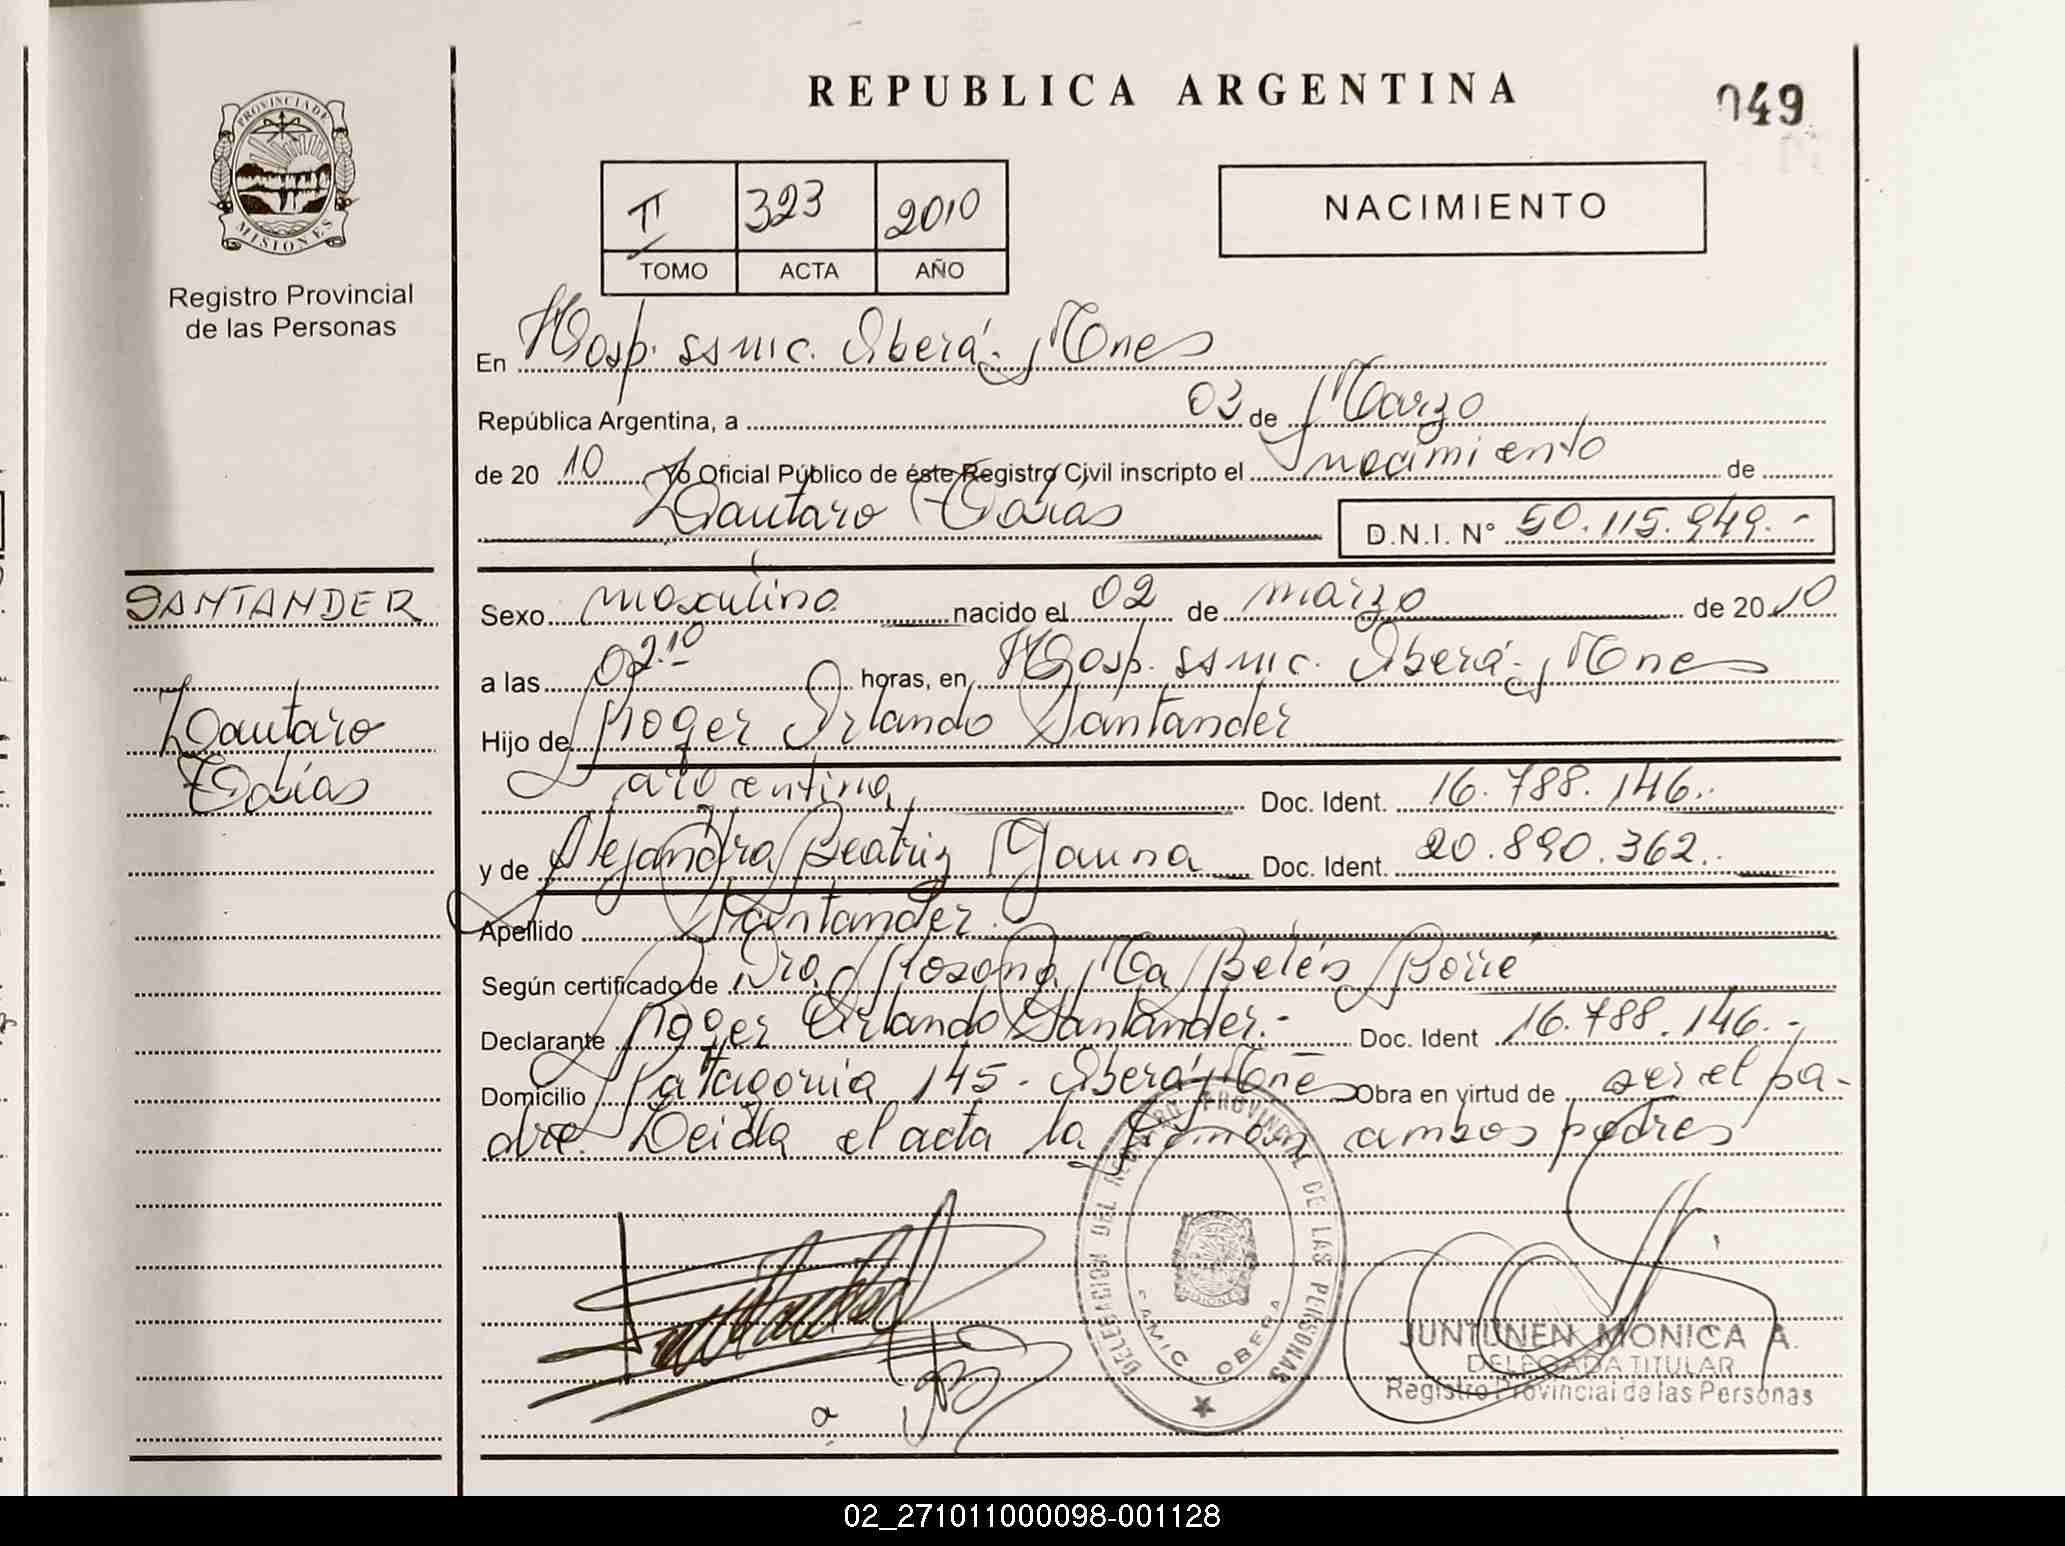 REPUBLICA ARGENTINA
049
PROVINCIA DE
MISIONES
Registro Provincial
de las Personas
II 323 2010
TOMO ACTA AÑO
NACIMIENTO
En Hosp. ssmic. Oberá - Mnes
República Argentina, a 03 de Marzo
de 20 10 Yo Oficial Público de éste Registro Civil inscripto el nacimiento de
Lautaro Tobías
D.N.I. N° 50.115.949.-
SANTANDER
Lautaro
Tobías
Sexo masculino nacido el 02 de marzo de 20 10
a las 02.10 horas, en Hosp. ssmic. Oberá - Mnes
Hijo de Roger Orlando Santander
argentina Doc. Ident. 16.788.146.-
y de Alejandra Beatriz Gauna Doc. Ident. 20.890.362.-
Apellido Santander.
Según certificado de Dra. Rosana Ma Belén Borré
Declarante Roger Orlando Santander.- Doc. Ident 16.788.146.-
Domicilio Patagonia 145. Oberá Mnes Obra en virtud de ser el pa-
dre. Leída el acta la firman ambos padres
DELEGACION DEL REGISTRO PROVINCIAL DE LAS PERSONAS
SAMIC OBERA
MISIONES
JUNTUNEN MONICA A.
DELEGADA TITULAR
Registro Provincial de las Personas
02_271011000098-001128